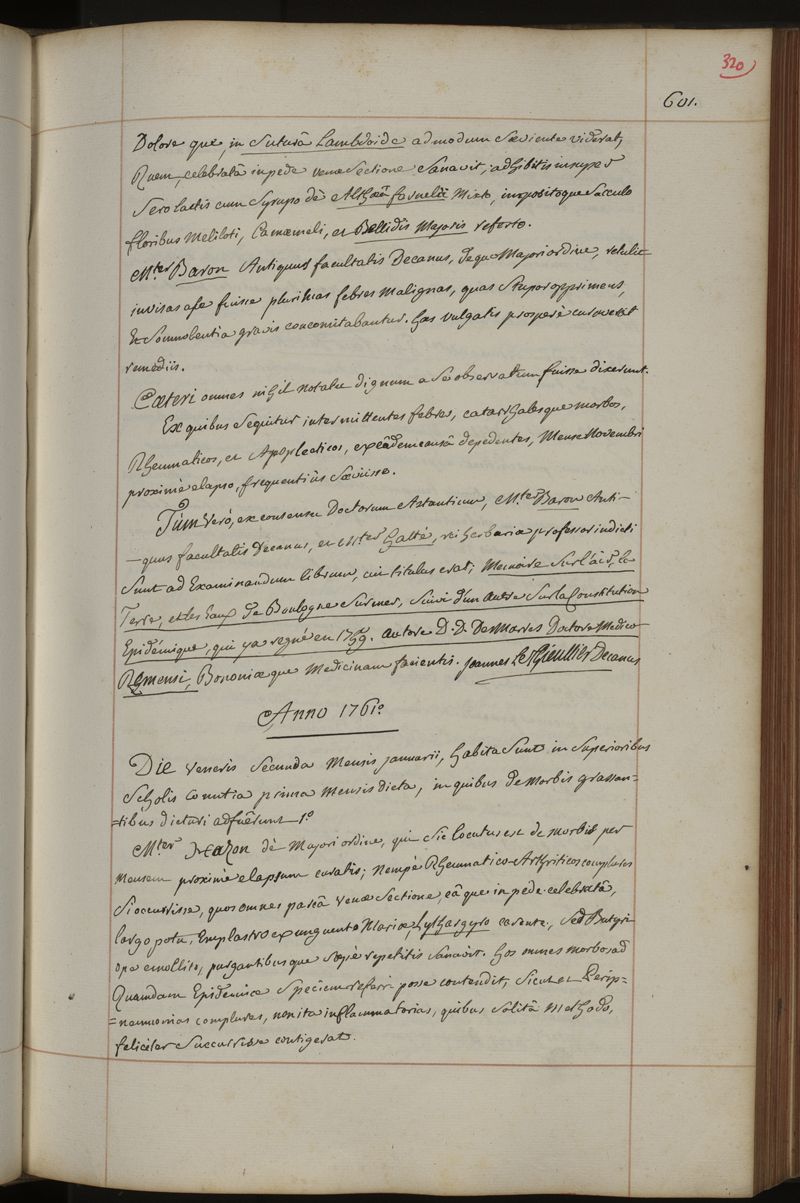 320
601.
Dolore que, in Suturâ Lambdoide admodum Sæviente viderat,
Quem, celebratâ in pede venæ Sectione Sanavit, adhibitis insuper
Sero lactis cum Syrupo de Althæâ fernelii Misto, impositoque Sacculo
floribus Meliloti, Camæmeli, et Bellidis Majoris referto.
M.ter Baron Antiquus facultatis Decanus, de quo Majori ordine, retulit
invisas a se fuisse plurimas febres Malignas, quas Stupor opprimens,
Et Somnolentia gravis concomitabantur. has vulgatis prosperè curaverat
remediis.
Cæteri omnes nihil notatu dignum a Se observatum fuisse dixerunt.
Ex quibus Sequitur intermittentes febres, catarrhalesque morbos,
Rheumaticos, et Apoplecticos, ex eâdem causâ depedentes, Mense Novembri
proximè elapso, frequentiùs Sæviisse.
Tùm verò, ex consensu Doctorum Astantium, M.ter Baron Anti-
-quus facultatis Decanus, et M.ter Gallé, rei herbariæ professor indicti
Sunt ad Examinandum librum, cui titulus erat; Memoire Sur l'air, la
Terre, et les Eaux de Boulogne Sur mer, Suivi d'un Autre Sur la Constitution
Epidémique, qui y a regné en 1759. Autore D. D. DesMarres Doctore Medico
Rhemensi, Bononiæque Medicinam facientis. Joannes Le Thieullier Decanus
Anno 1761.º
Die Veneris Secunda Mensis januarii, habita Sunt in Superioribus
Scholis Comitia prima Mensis dicta, in quibus de Morbis grassan=
=tibus dicturi adfuerunt 1.º
M.ter Hazon dè Majori ordine, qui Sic locutus est de morbis per
Mensem proximè elapsum curatis; Nempè Rheumatico-Arthriticos complures
Si occurrisse, quos omnes parcâ venæ Sectione, eâque in pede celebratâ,
largo potu, Emplastro ex unguento Mariæ Lythargyro carente, Sed Butyri
ope emollito, purgantibusque Sæpiè repetitis Sanavit. hos omnes morbos ad
Quamdam Epidemicæ Speciem referri posse contendit, Sicut et Perip=
=neumonias complures, non ita inflammatorias, quibus Solitâ Methodo,
feliciter Succurrisse contigerat.